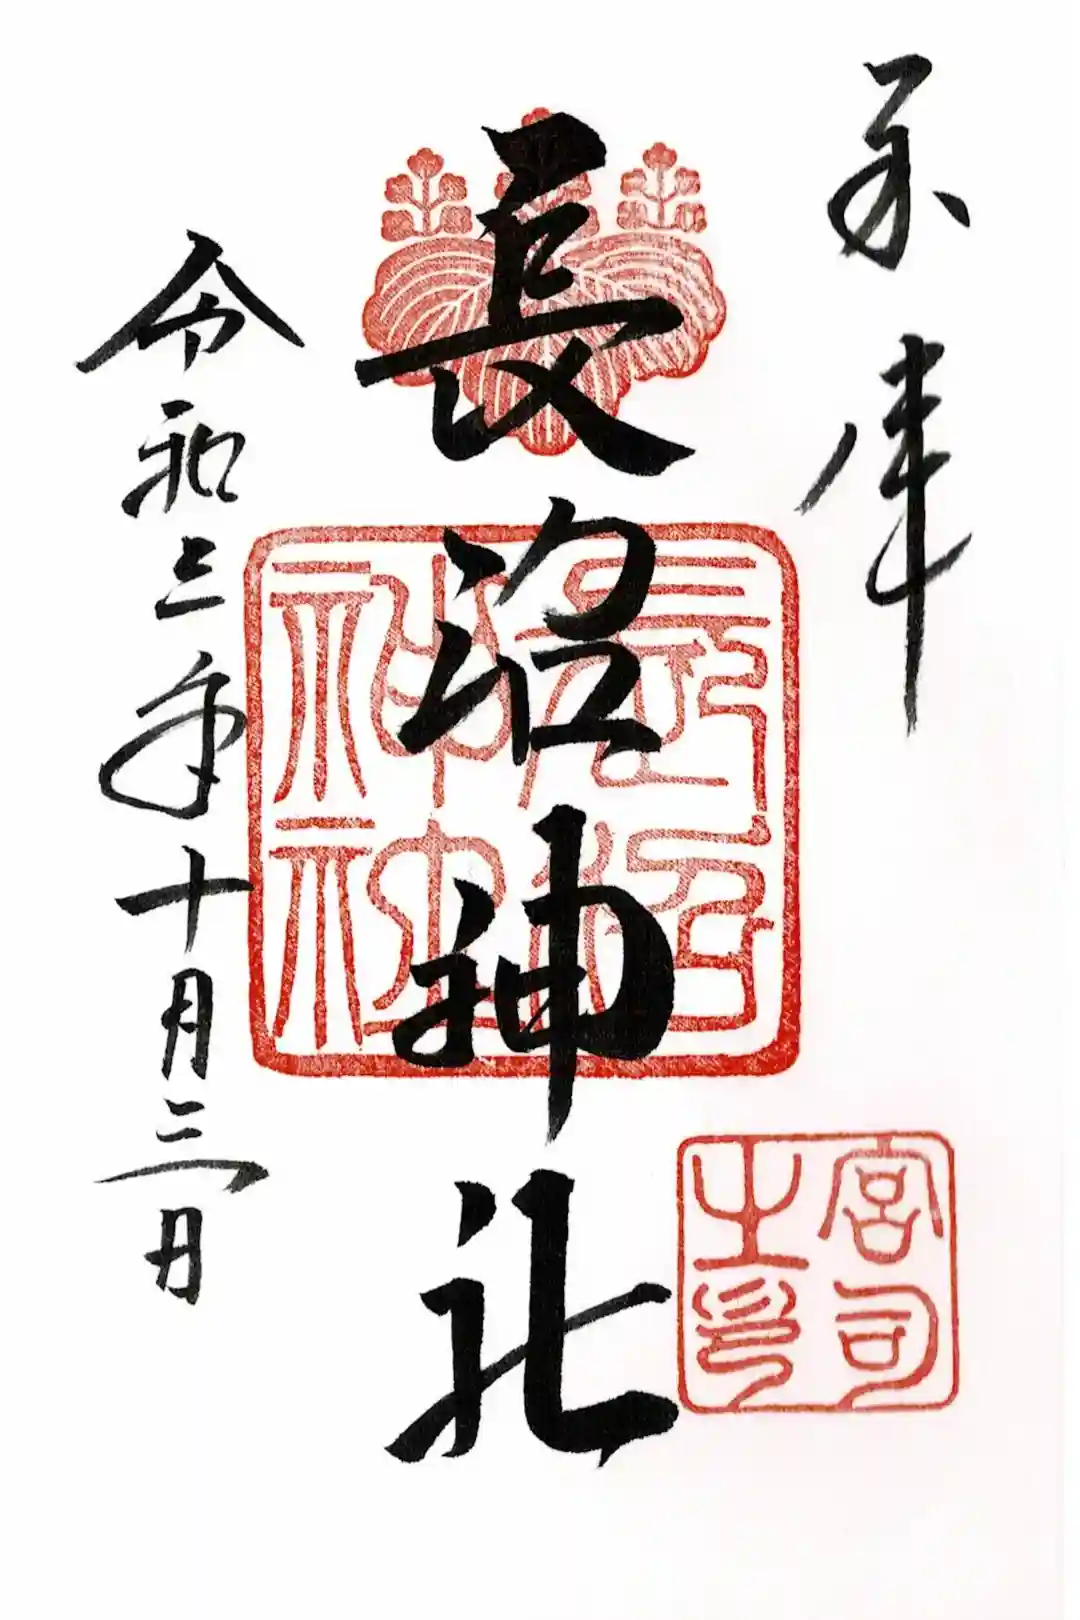 拝
長沼神社
長沼神社
宮司之印
令和三年十月三日